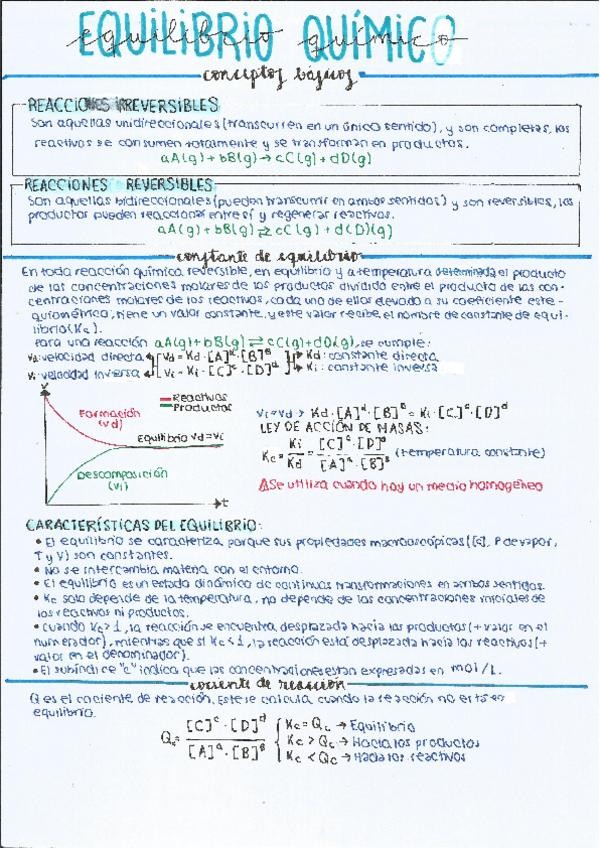 EQUILIBRIO QUÍMICO
equilibrio químico
conceptos básicos
REACCIONES IRREVERSIBLES
Son aquellas unidireccionales (transcurren en un único sentido), y son completas, los
reactivos se consumen totamente y se transforman en productos.
aA(g) + bB(g) → cC(g) + dD(g)
REACCIONES REVERSIBLES
Son aquellas bidireccionales (pueden transcurrir en ambos sentidos) y son reversibles, los
productos pueden reaccionar entre sí y regenerar reactivos.
aA(g) + bB(g) ⇌ cC(g) + d(D)(g)
constante de equilibrio
En toda reacción química reversible, en equilibrio y a temperatura determinada el producto
de las concentraciones molares de los productos dividido entre el producto de las con-
centraciones molares de los reactivos, cada uno de ellos elevado a su coeficiente este-
quiométrico, tiene un valor constante, y este valor recibe el nombre de constante de equi-
librio (Kc).
Para una reacción aA(g) + bB(g) ⇌ cC(g) + dD(g), se cumple:
Vd: velocidad directa Vd = Kd · [A]ᵃ · [B]ᴮ Kd: constante directa
Vi: velocidad inversa Vi = Ki · [C]ᶜ · [D]ᵈ Ki: constante inversa
V
Reactivos
Productos
Formación
(Vd)
Equilibrio Vd = Vi
Descomposición
(Vi)
t
Vi = Vd → Kd · [A]ᵃ · [B]ᴮ = Ki · [C]ᶜ · [D]ᵈ
LEY DE ACCIÓN DE MASAS:
Kc = Ki/Kd = [C]ᶜ · [D]ᵈ / [A]ᵃ · [B]ᴮ (temperatura constante)
⚠Se utiliza cuando hay un medio homogéneo
CARACTERÍSTICAS DEL EQUILIBRIO:
• El equilibrio se caracteriza porque sus propiedades macroscópicas ([c], P de vapor,
T y V) son constantes.
• No se intercambia materia con el entorno.
• El equilibrio es un estado dinámico de continuas transformaciones en ambos sentidos.
• Kc solo depende de la temperatura, no depende de las concentraciones iniciales de
los reactivos ni productos.
• Cuando Kc > 1, la reacción se encuentra desplazada hacia los productos (+ valor en el
numerador), mientras que si Kc < 1, la reacción está desplazada hacia los reactivos (+
valor en el denominador).
• El subíndice "c" indica que las concentraciones están expresadas en mol/L.
cociente de reacción
Q es el cociente de reacción. Este se calcula cuando la reacción no está en
equilibrio.
Qc = [C]ᶜ · [D]ᵈ / [A]ᵃ · [B]ᴮ
Kc = Qc → Equilibrio
Kc > Qc → Hacia los productos
Kc < Qc → Hacia los reactivos